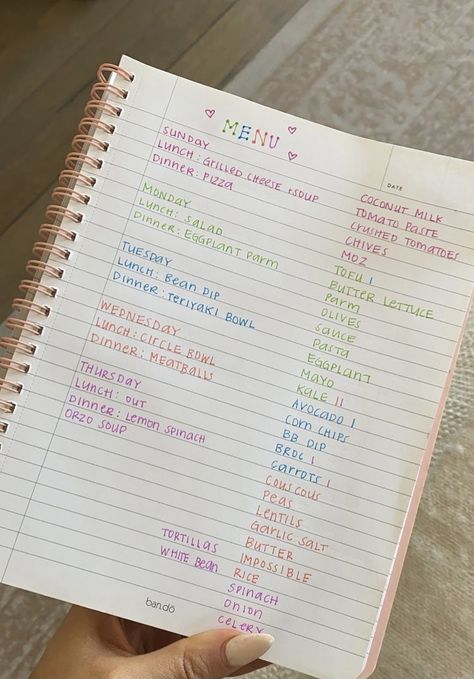 MENU
DATE
SUNDAY
LUNCH: GRILLED CHEESE + SOUP
DINNER: PIZZA
MONDAY
LUNCH: SALAD
DINNER: EGGPLANT PARM
TUESDAY
LUNCH: BEAN DIP
DINNER: TERIYAKI BOWL
WEDNESDAY
LUNCH: CIRCLE BOWL
DINNER: MEATBALLS
THURSDAY
LUNCH: OUT
DINNER: LEMON SPINACH
ORZO SOUP
COCONUT MILK
TOMATO PASTE
CRUSHED TOMATOES
CHIVES
MOZ
TOFU I
BUTTER LETTUCE
PARM
OLIVES
SAUCE
PASTA
EGGPLANT
MAYO
KALE II
AVOCADO I
CORN CHIPS
BB DIP
BROC I
CARROTS I
COUSCOUS
PEAS
LENTILS
GARLIC SALT
BUTTER
IMPOSSIBLE
RICE
SPINACH
ONION
CELERY
TORTILLAS
WHITE BEAN
ban.dō